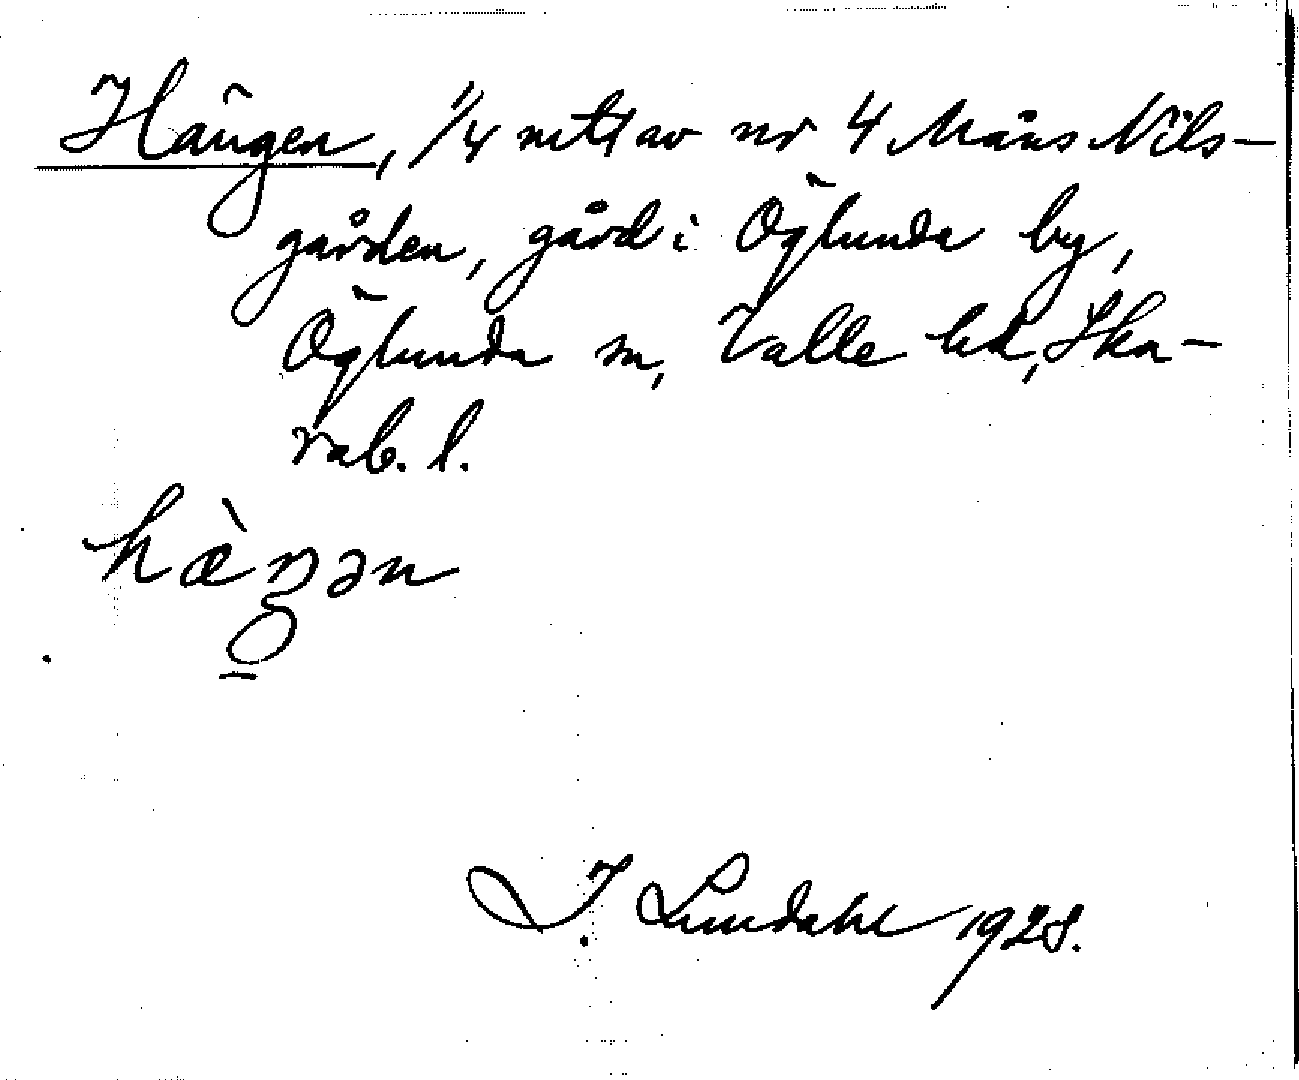 Hängen, 1/4 mtl av nr 4 Måns Nils-
gården, gård i Öglunda by,
Öglunda sn, Valle hd, Ska-
rab. l.
hæ̀ŋən
I. Lundahl 1928.